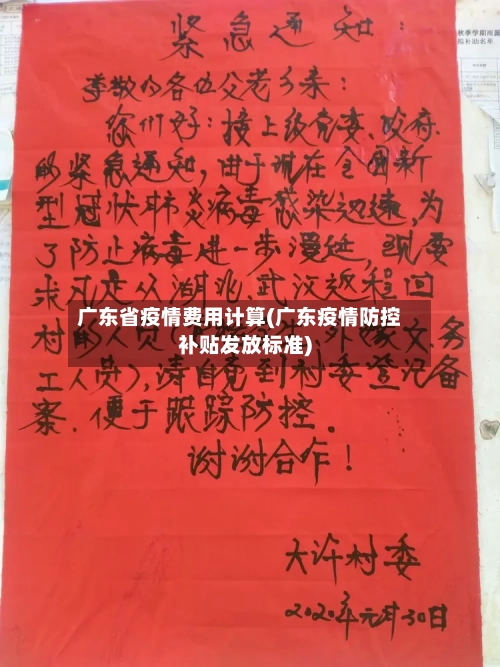 紧急通知
秋季学期雨露
尊敬的各位父老乡亲：
您们好：接上级党委、政府
的紧急通知，由于现在全国新
型冠状肺炎病毒感染迅速，为
了防止病毒进一步漫延，现要
求凡是从湖北武汉返程回
广东省疫情费用计算(广东疫情防控
补贴发放标准)
村的人员
外
务
工人员)，请自觉到村委登记备
案．便于跟踪防控。
谢谢合作！
大许村委
2020年元月30日